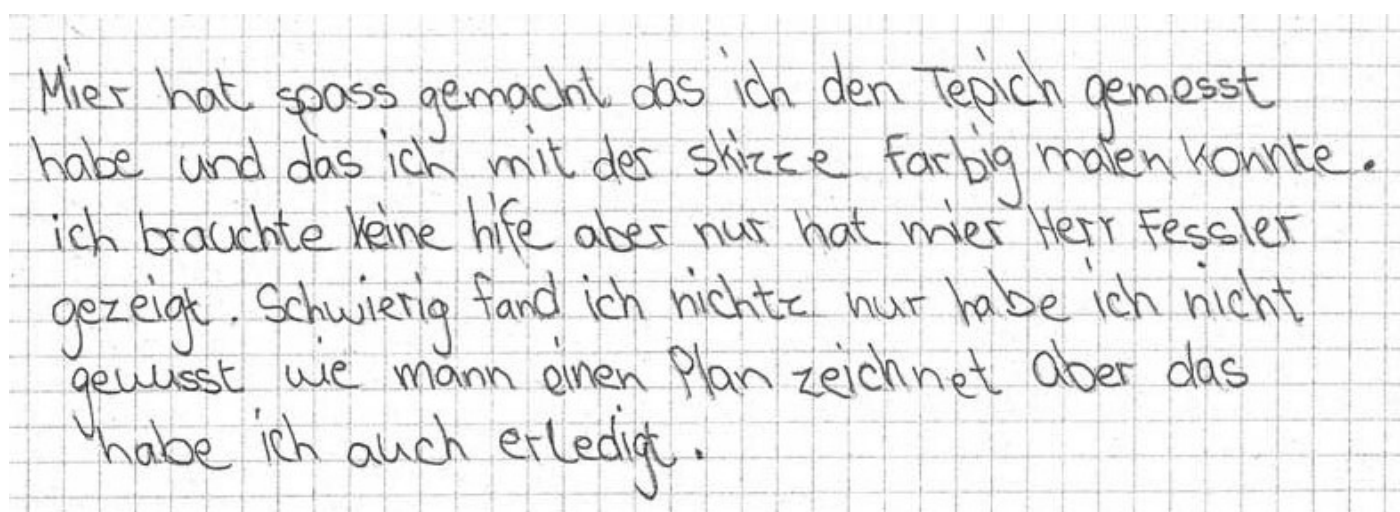 Mier hat spass gemacht das ich den Tepich gemesst
habe und das ich mit der skizze farbig malen konnte.
ich brauchte keine hife aber nur hat mier Herr Fessler
gezeigt. Schwierig fand ich nichtz nur habe ich nicht
gewusst wie mann einen Plan zeichnet aber das
habe ich auch erledigt.